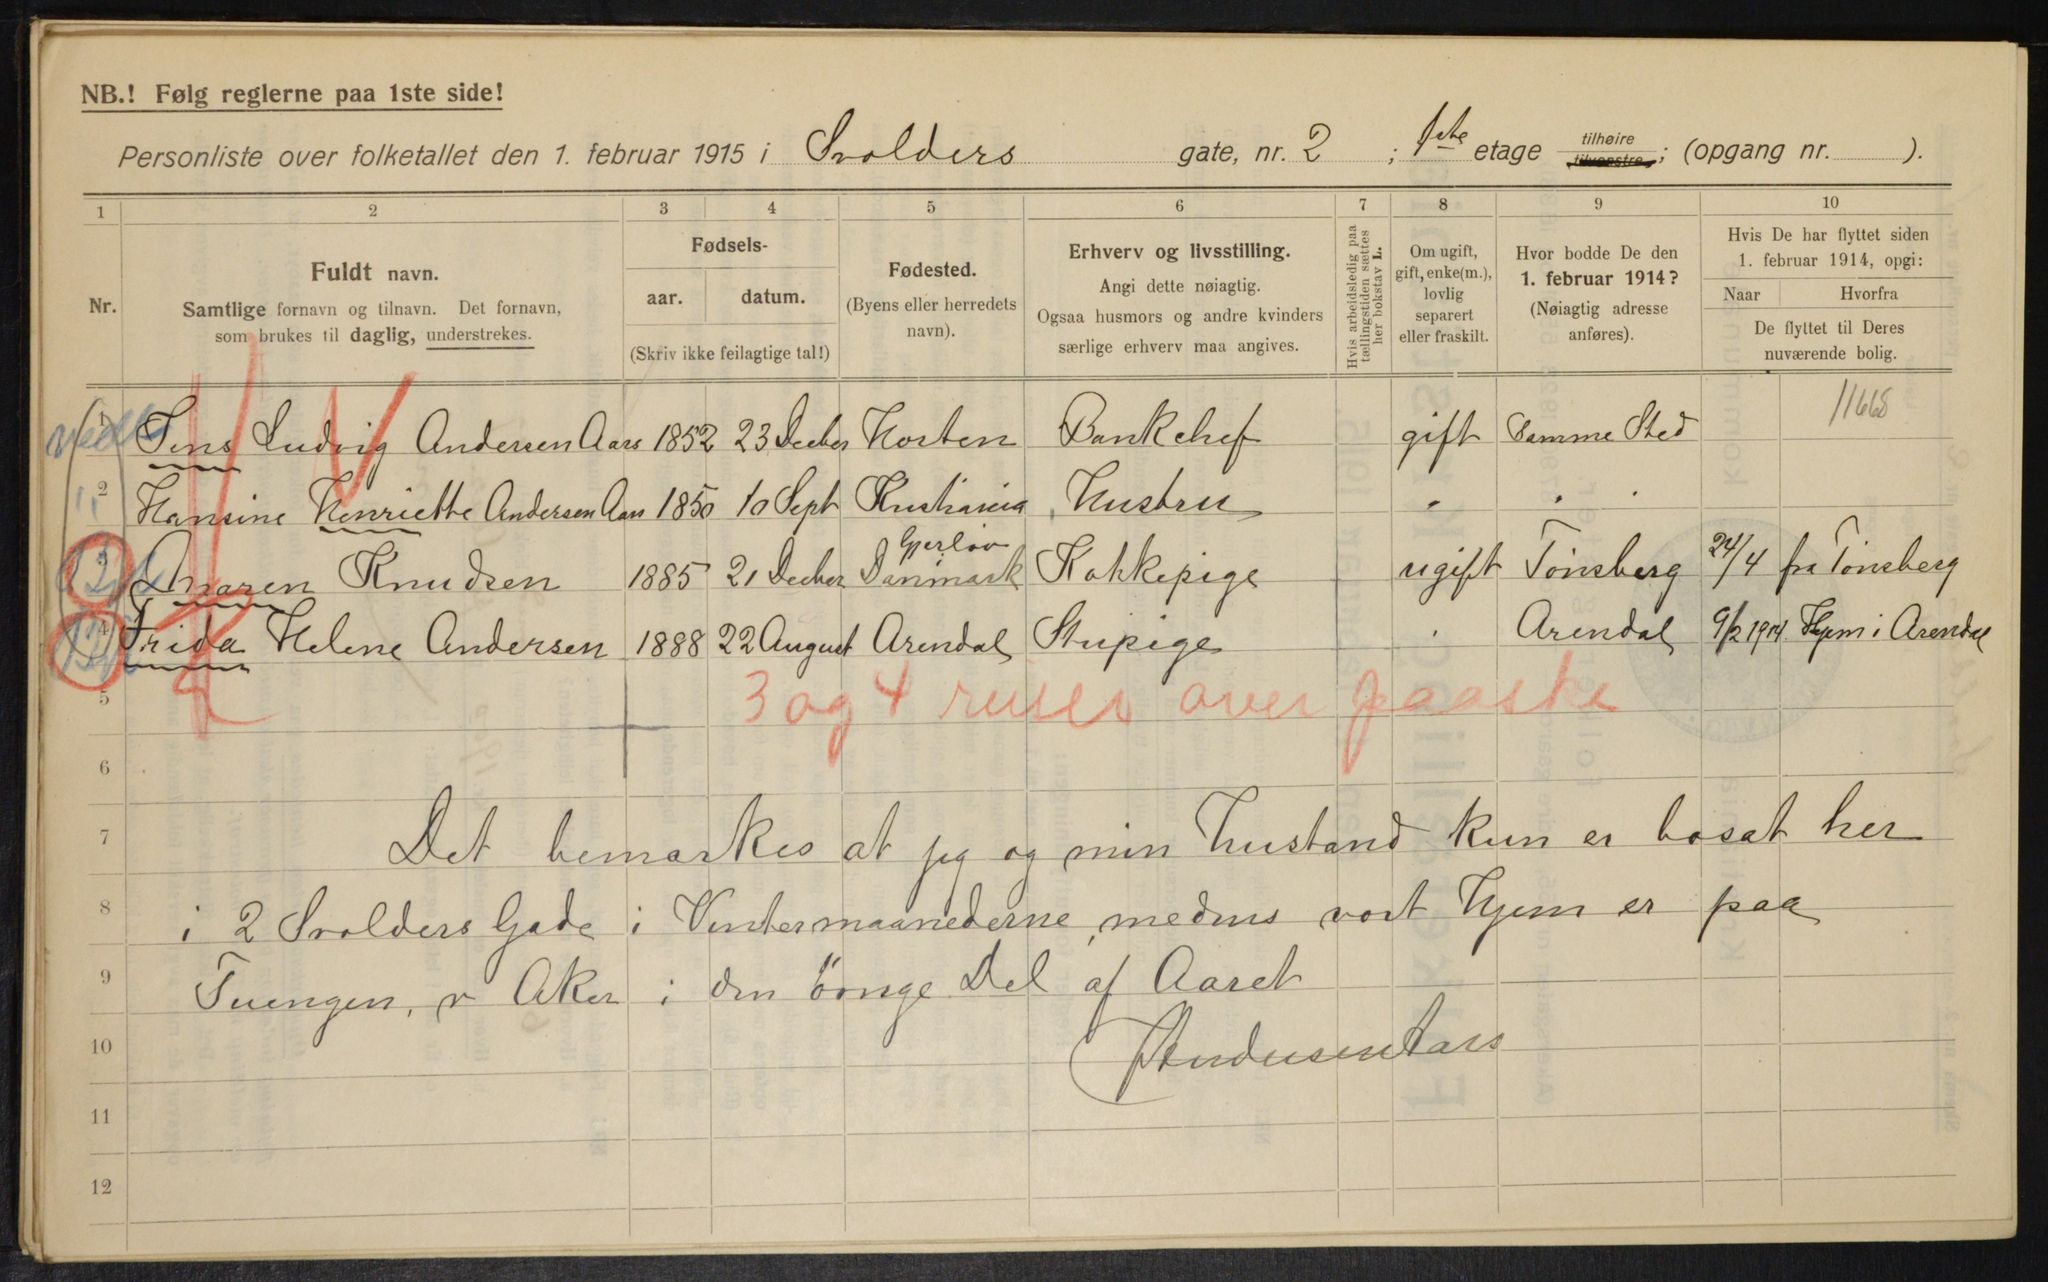 NB.! Følg reglerne paa 1ste side!
Personliste over folketallet den 1. februar 1915 i Svolders gate, nr. 2 ; 1ste etage tilhøire tilvenstre; (opgang nr. ).
1 2 3 4 5 6 7 8 9 10
Nr.
Fuldt navn.
Samtlige fornavn og tilnavn. Det fornavn,
som brukes til daglig, understrekes.
Fødsels-
aar. datum.
(Skriv ikke feilagtige tal!)
Fødested.
(Byens eller herredets
navn).
Erhverv og livsstilling.
Angi dette nøiagtig.
Ogsaa husmors og andre kvinders
særlige erhverv maa angives.
Hvis arbeidsledig paa
tællingstiden sættes
her bokstav L.
Om ugift,
gift, enke(m.),
lovlig
separert
eller fraskilt.
Hvor bodde De den
1. februar 1914?
(Nøiagtig adresse
anføres).
Hvis De har flyttet siden
1. februar 1914, opgi:
Naar Hvorfra
De flyttet til Deres
nuværende bolig.
11668
1 Jens Ludvig Andersen Aars 1852 23 Decber Horten Bankchef gift Samme Sted
2 Hansine Henriette Andersen Aars 1850 10 Sept Kristiania Hustru " " "
3 Maren Knudsen 1885 21 Decber Gjerløv Danmark Kokkepige ugift Tönsberg 24/4 fra Tönsberg
4 Frida Helene Andersen 1888 22 August Arendal Stupige " Arendal 9/2 1914 Hjem i Arendal
5 3 og 4 reiser over paaske
6
7 Det bemarkes at jeg og min Hustand kun er bosat her
8 i 2 Svolders Gade i Vintermaanederne, medens vort Hjem er paa
9 Tuengen, v Aker i den övrige Del af Aaret
10 J Andersen Aars
11
12